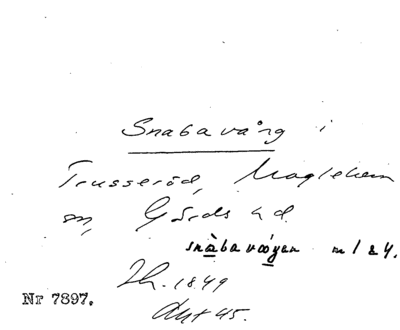 Snabavång i
Trusseröd, Maglehem
sn, Gärds hd.
snàbavåŋen m 1 & 4.
Zh. 1849
Nr 7897.